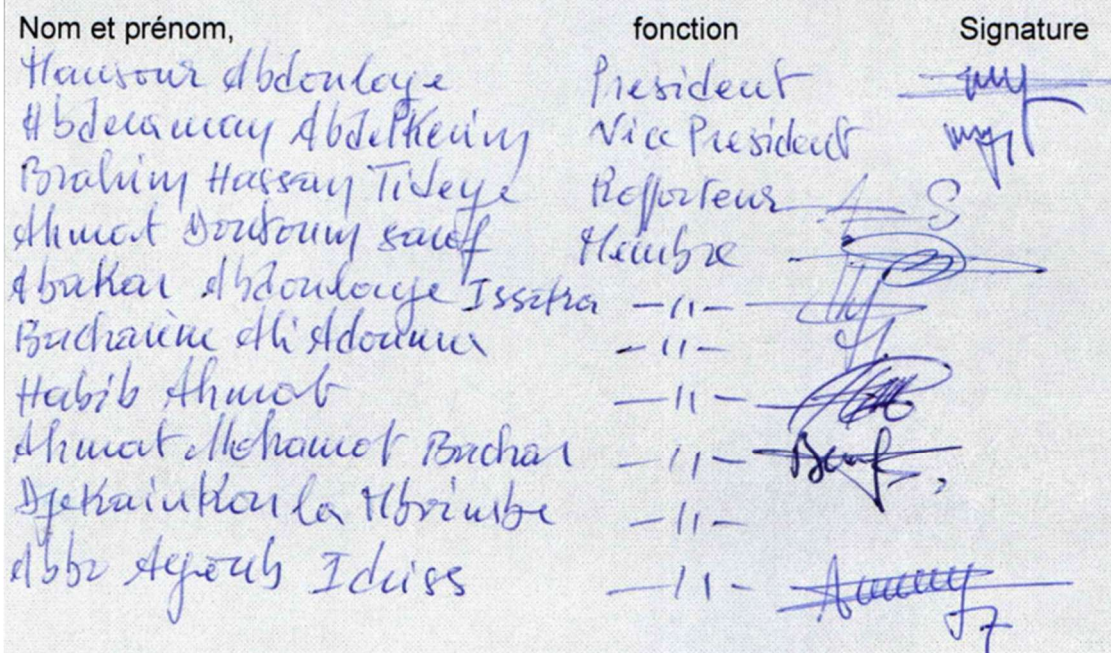 Nom et prénom, fonction Signature
Mansour Abdoulaye President
Abderaman Abdelkerim Vice President
Brahim Hassan Tideye Rapporteur
Ahmat Doutoum
Membre
Abakar Abdoulaye Issakha —//—
Bacharème Ali Adoum —//—
Habib Ahmat —//—
Ahmat Mahamat Bachar —//—
Djekainkoula Mbrimbe —//—
Abbo Ayoub Idriss —//—